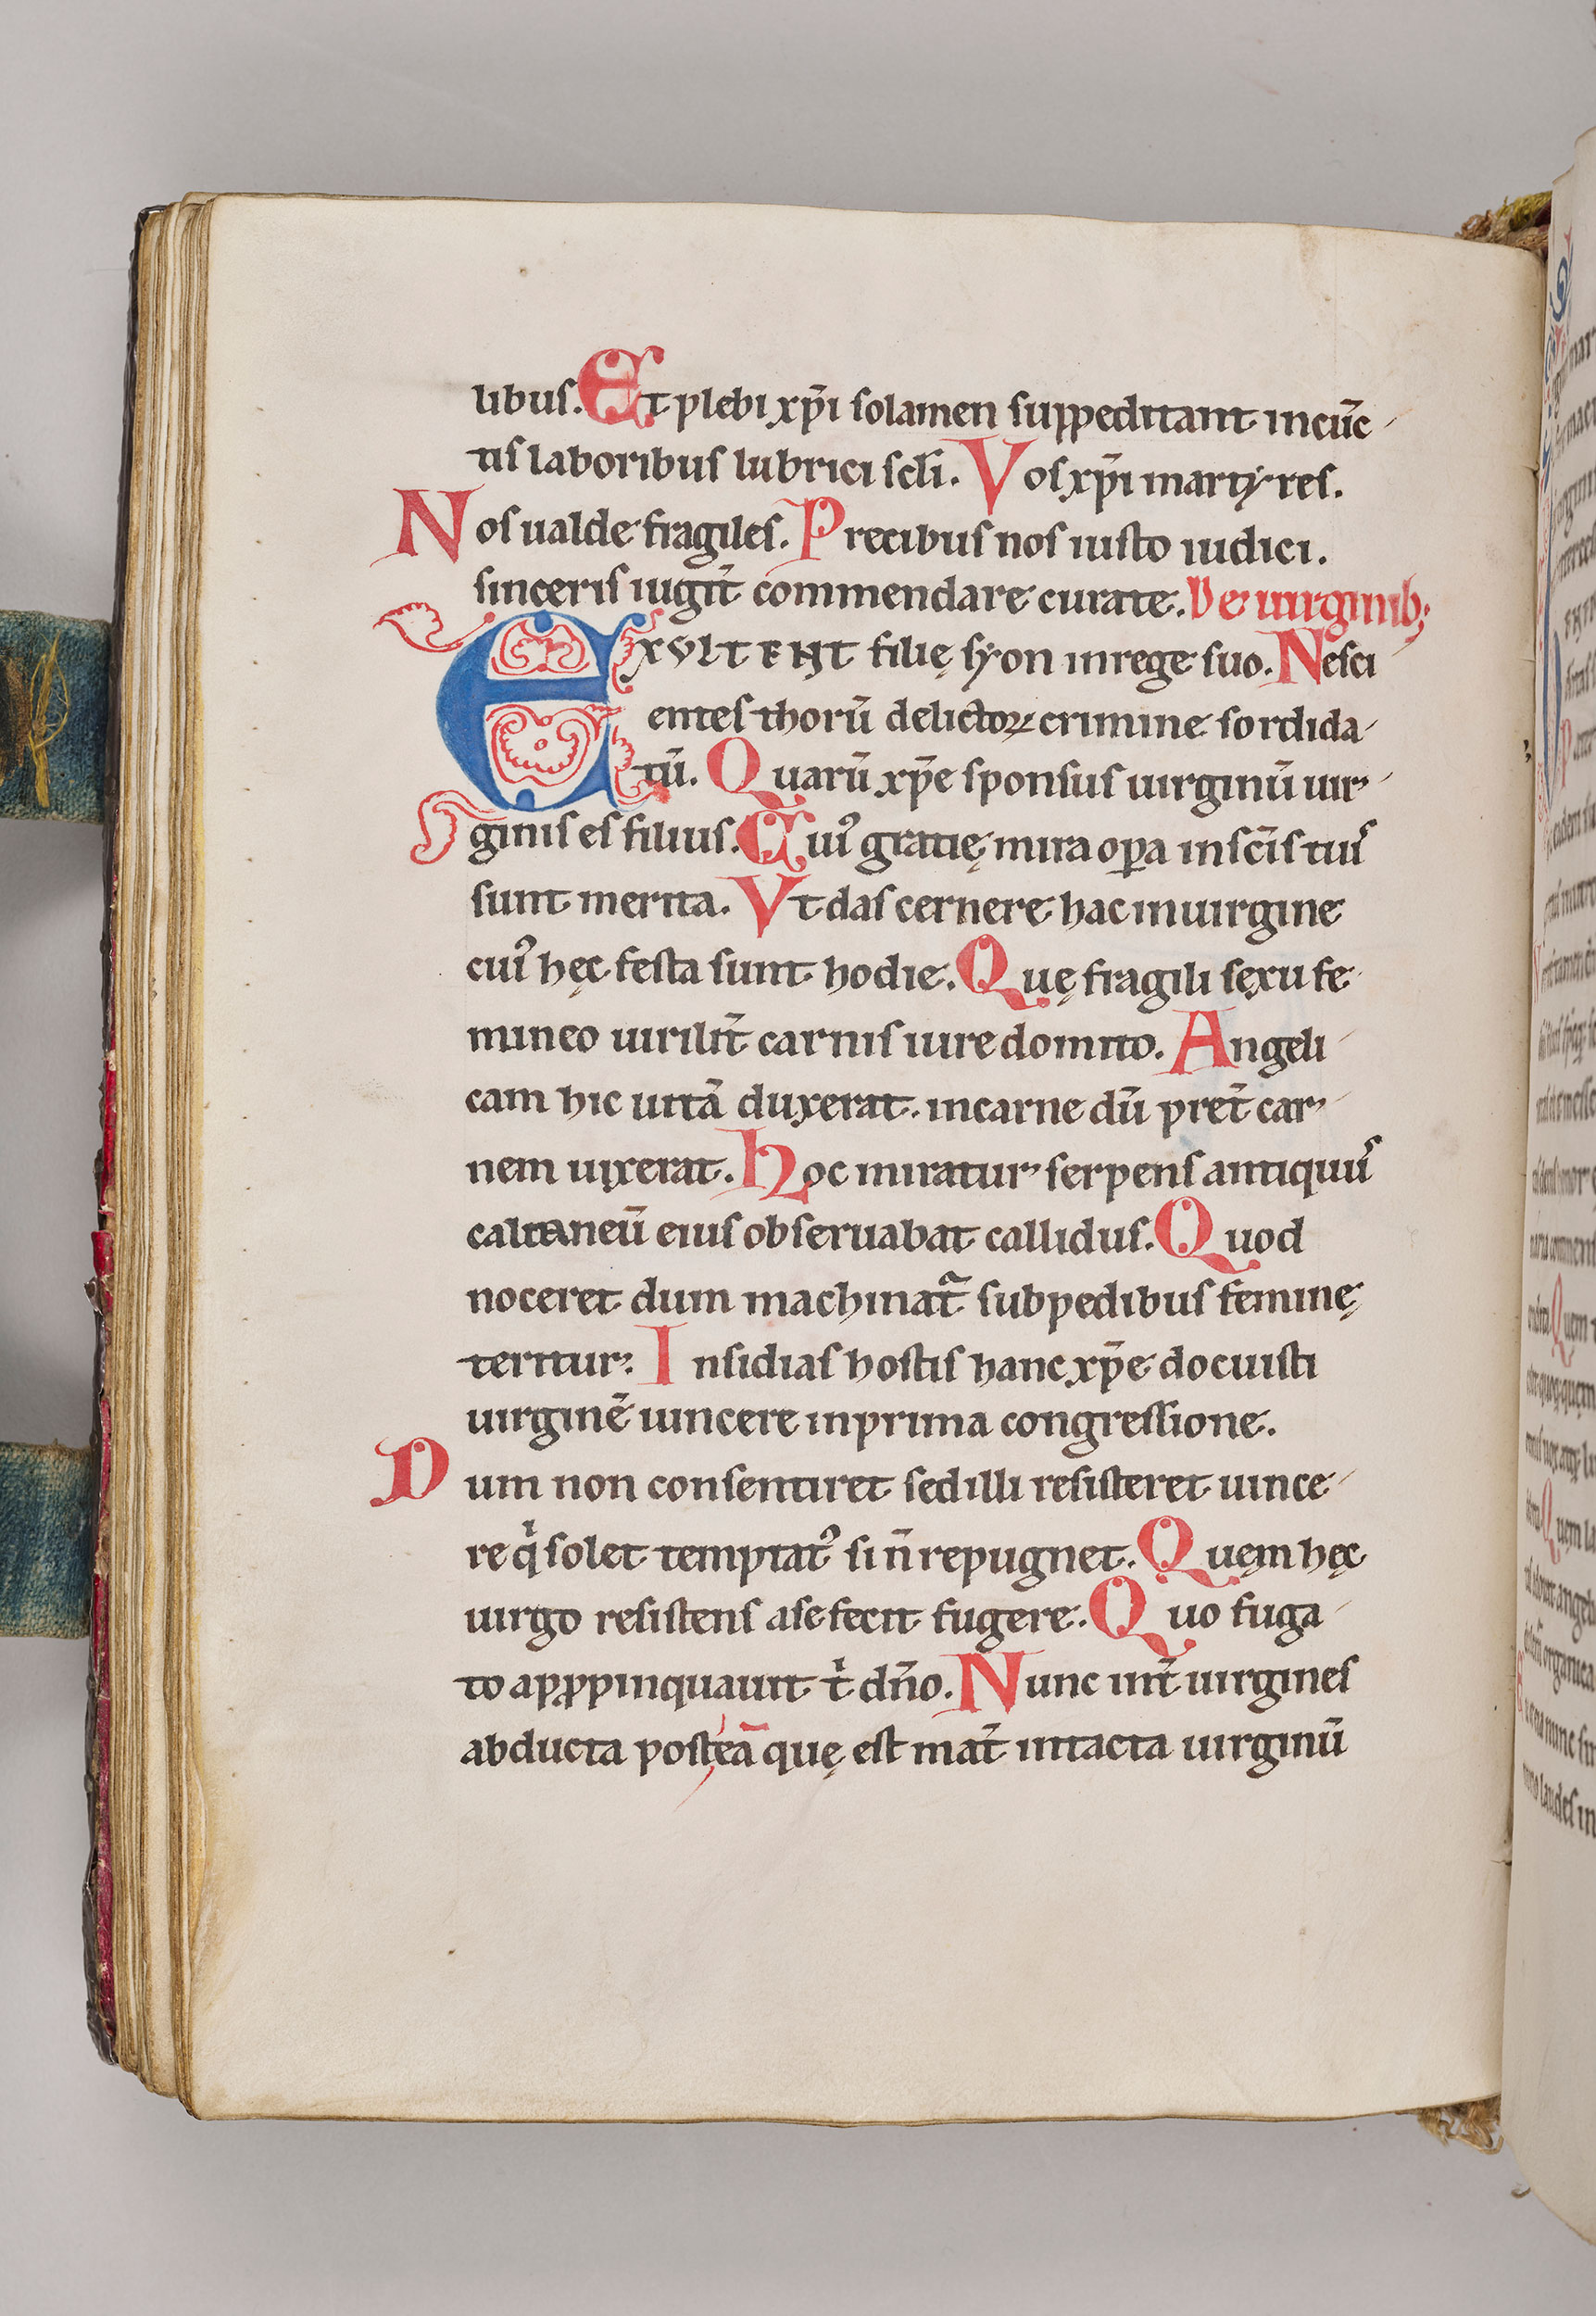 libus. Et plebi xp̄i solamen suppeditant incūc
tis laboribus lubrici scl̄i. Vos xp̄i martyres.
Nos ualde fragiles. Precibus nos iusto iudici.
sinceris iugit̄ commendare curate. De uirginib;
EXVLTENT filię syon in rege suo. Nesci
entes thorū delictoꝝ crimine sordida
tū. Quarū xp̄e sponsus uirginū uir
ginis es filius. Cuiꝰ gratię mira oꝑa in sc̄is tuis
sunt merita. Vt das cernere hac in uirgine
cuiꝰ hęc festa sunt hodie. Quę fragili sexu fe
mineo uirilit̄ carnis iure domito. Angeli
cam hic uitā duxerat. in carne dū pret̄ car
nem uixerat. Hoc miratur serpens antiquus
calcaneū eius obseruabat callidus. Quod
noceret dum machinat̄ sub pedibus feminę
teritur. Insidias hostis hanc xp̄e docuisti
uirginē uincere in prima congressione.
Dum non consentiret sed illi resisteret uince
re qͥ solet temptatꝰ si n̄ repugnet. Quem hęc
uirgo resistens a se fecit fugere. Quo fuga
to apꝓpinquauit tͥ dn̄o. Nunc int̄ uirgines
abducta post eā quę est mat̄ intacta uirginū